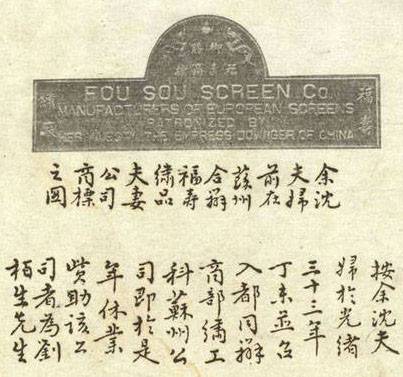 福壽
FOU SOU SCREEN Co.
MANUFACTURERS OF EUROPEAN SCREENS
PATRONIZED BY
HER MAJESTY THE EMPRESS DOWAGER OF CHINA
余沈
夫婦
前在
蘇州
合辦
福壽
繡品
夫妻
公司
商標
之圖
按余沈夫
婦於光緒
三十三年
丁未並召
入都同辦
商部繡工
科蘇州公
司即於是
年休業
贊助該公
司者為劉
柏生先生